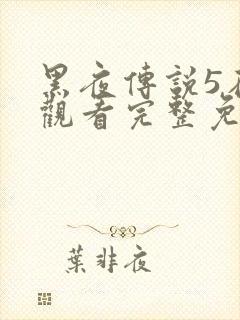 黑夜傳説5
觀看完整免
葉非夜